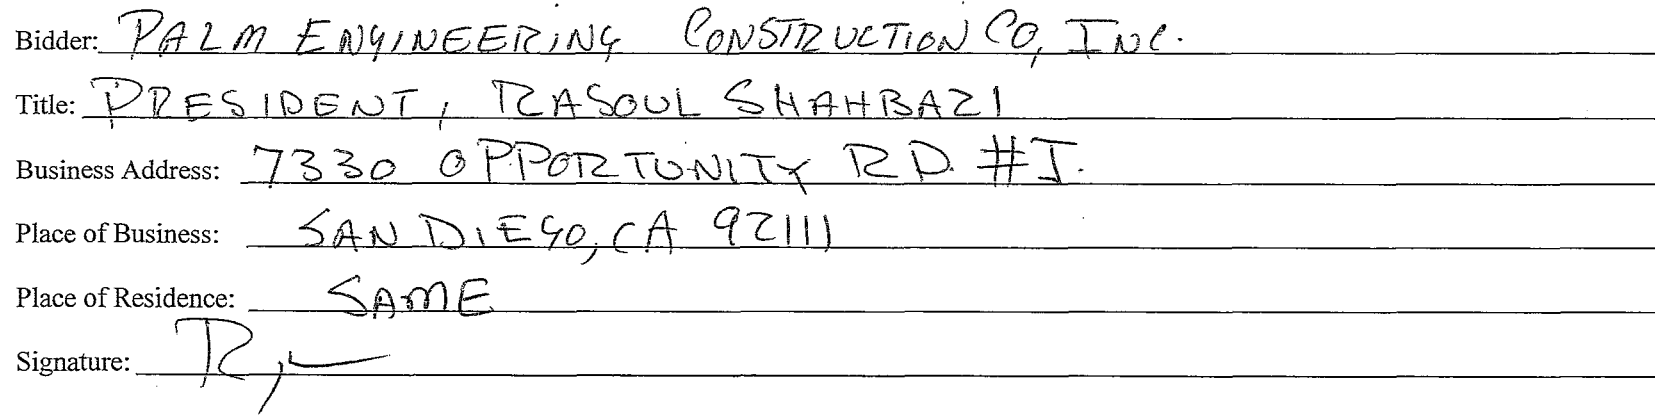 Bidder: PALM ENGINEERING CONSTRUCTION CO, INC.
Title: PRESIDENT, RASOUL SHAHBAZI
Business Address: 7330 OPPORTUNITY RD. #J.
Place of Business: SAN DIEGO, CA 92111
Place of Residence: SAME
Signature: